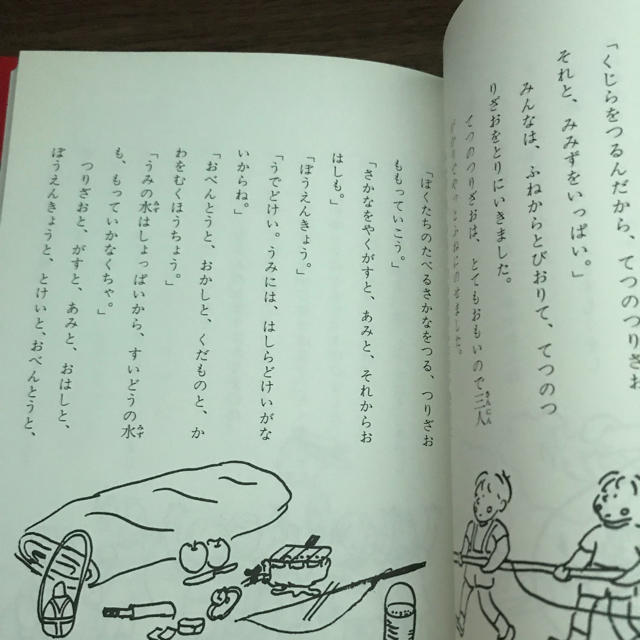 「くじらをつるんだから、てつのつりざお
それと、みみずをいっぱい。」
みんなは、ふねからとびおりて、てつのつ
りざおをとりにいきました。
てつのつりざおは、とてもおもいので三人
がかりでやっとふねにのせました。
「ぼくたちのたべるさかなをつる、つりざお
ももっていこう。」
「さかなをやくがすと、あみと、それからお
はしも。」
「ぼうえんきょう。」
「うでどけい。うみには、はしらどけいがな
いからね。」
「おべんとうと、おかしと、くだものと、か
わをむくほうちょう。」
「うみの水はしょっぱいから、すいどうの水
も、もっていかなくちゃ。」
つりざおと、がすと、あみと、おはしと、
ぼうえんきょうと、とけいと、おべんとうと、